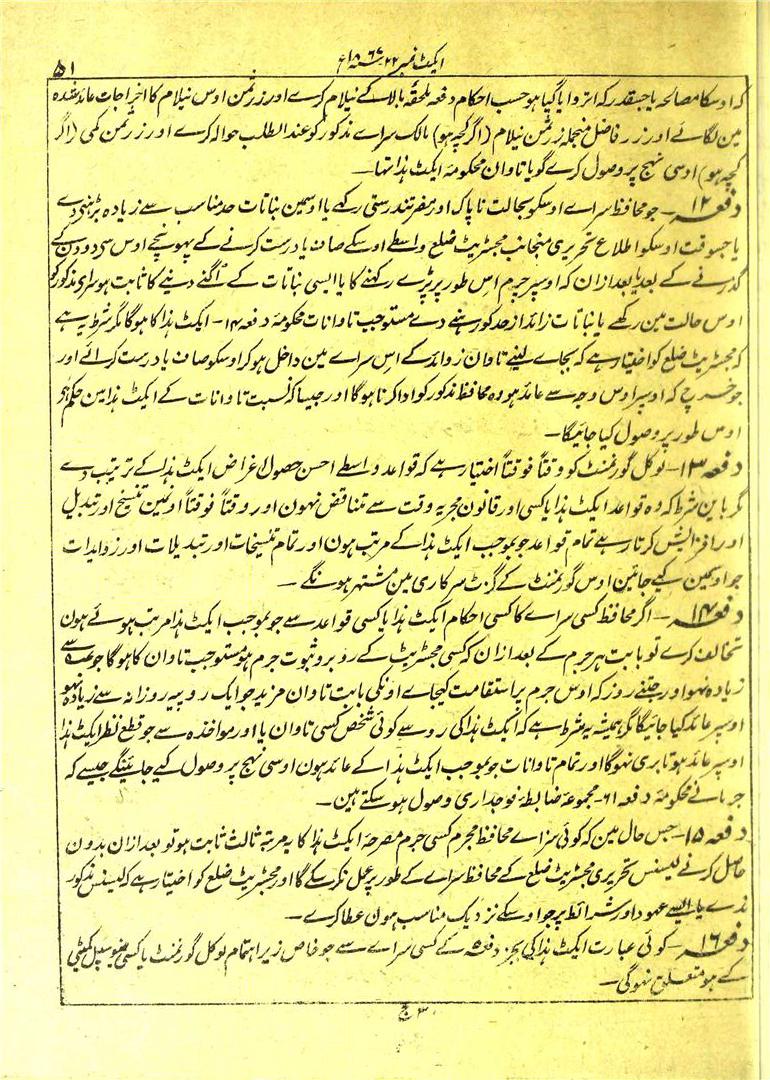 ایکٹ نمبر ۲۲ سنہ ۱۸۶۷ع
۵۱
کہ اوسکا مصالحہ یا جسقدر کہ اتروایا گیا ہو حسب احکام دفعہ ملحقہ بالا کے نیلام کرے اور زر ثمن اوس نیلام کا اخراجات عائد شدہ
مین لگائے اور زر فاضل منجملہ زر ثمن نیلام (اگر کچھ ہو) مالک سراے مذکور کو عند الطلب حوالہ کرے اور زر ثمن کمی (اگر
کچھ ہو) اوسی نہج پر وصول کرے گویا تاوان محکومہ ایکٹ ہذا تھا۔
دفعہ ۱۲۔ جو محافظ سراے اوسکو بحالت ناپاک اور مضر تندرستی رکھے یا اوسمین نباتات حد مناسب سے زیادہ بڑہنے دے
یا جسوقت اوسکو اطلاع تحریری منجانب مجسٹریٹ ضلع واسطے اوسکے صاف یا درست کرنے کے پہونچے اوس سی دو دن کے
گذرنے کے بعد یا بعد ازان کہ اوسپر جرم اس طور پر پڑے رکھنے کا یا ایسی نباتات کے اُگنے دینے کا ثابت ہو سراے مذکور کو
اوس حالت مین رکھے یا نباتات زائد از حد کو رہنے دے مستوجب تاوانات محکومہ دفعہ ۱۴۔ ایکٹ ہذا کا ہوگا مگر شرط یہ ہے
کہ مجسٹریٹ ضلع کو اختیار ہے کہ بجاے لینے تاوان زوائد کے اس سراے مین داخل ہو کر اوسکو صاف یا درست کرائے اور
جو خرچ کہ اوسپر اوس وجہ سے عائد ہو وہ محافظ مذکور کو ادا کرنا ہوگا اور جیسا کہ نسبت تاوانات کے ایکٹ ہذا مین حکم ہی
اوس طور پر وصول کیا جائیگا۔
دفعہ ۱۳۔ لوکل گورنمنٹ کو وقتاً فوقتاً اختیار ہے کہ قواعد واسطے احسن حصول اغراض ایکٹ ہذا کے ترتیب دے
مگر باین شرط کہ وہ قواعد ایکٹ ہذا یا کسی اور قانون مجریہ وقت سے متناقض نہون اور وقتاً فوقتاً اونمین تنسیخ اور تبدیل
اور افزایش کرتا رہے تمام قواعد جو بموجب ایکٹ ہذا کے مرتب ہون اور تمام تنسیخات اور تبدیلات اور زوایدات
جو اوسمین کیے جائین اوس گورنمنٹ کے گزٹ سرکاری مین مشتہر ہونگے۔
دفعہ ۱۴۔ اگر محافظ کسی سراے کا کسی احکام ایکٹ ہذا یا کسی قواعد سے جو بموجب ایکٹ ہذا مرتب ہوئے ہون
تخالف کرے تو بابت ہر جرم کے بعد ازان کہ کسی مجسٹریٹ کے روبرو ثبوت جرم ہو مستوجب تاوان کا ہوگا جو سے
زیادہ نہو اور جتنے روز کہ اوس جرم پر استقامت کیجاے اونکی بابت تاوان مزید جو ایک روپیہ روزانہ سے زیادہ نہو
اوسپر عائد کیا جائیگا مگر ہمیشہ یہ شرط ہے کہ ایکٹ ہذا کی رو سے کوئی شخص کسی تاوان یا اور مواخذہ سے جو قطع نظر ایکٹ ہذا
اوسپر عائد ہوتا بری نہوگا اور تمام تاوانات جو بموجب ایکٹ ہذا کے عائد ہون اوسی نہج پر وصول کیے جائینگے جیسے کہ
جرمانے محکومہ دفعہ ۶۱۔ مجموعہ ضابطہ فوجداری وصول ہو سکتے ہین۔
دفعہ ۱۵۔ جس حال مین کہ کوئی سراے محافظ مجرم کسی جرم مصرحہ ایکٹ ہذا کا بمرتبہ ثالث ثابت ہو تو بعد ازان بدون
حاصل کرنے لیسنس تحریری مجسٹریٹ ضلع کے محافظ سراے کے طور پر عمل نکر سکے گا اور مجسٹریٹ ضلع کو اختیار ہے کہ لیسنس مذکور
ندے یا ایسے عہود اور شرائط پر جو اوسکے نزدیک مناسب ہون عطا کرے۔
دفعہ ۱۶۔ کوئی عبارت ایکٹ ہذا کی بجز دفعہ ۵ کے کسی سراے سے جو خاص زیر اہتمام لوکل گورنمنٹ یا کسی میونسپل کمیٹی
کے ہو متعلق نہوگی۔
۳ ج